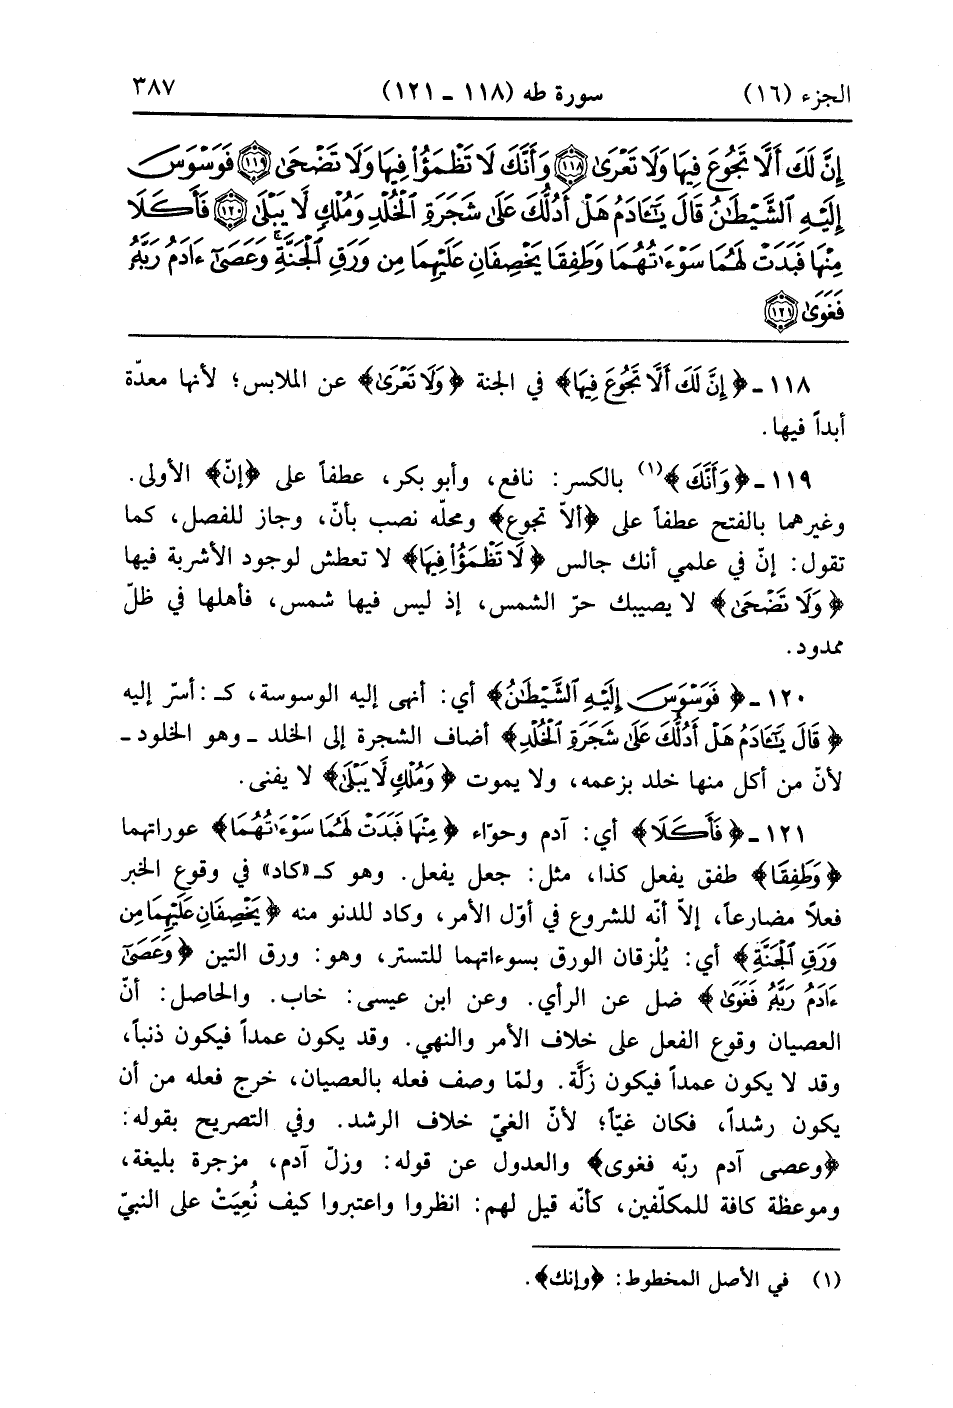 الجزء (١٦) سورة طه (١١٨ ـ ١٢١) ٣٨٧
إِنَّ لَكَ أَلَّا تَجُوعَ فِيهَا وَلَا تَعْرَىٰ ۝١١٨ وَأَنَّكَ لَا تَظْمَؤُا۟ فِيهَا وَلَا تَضْحَىٰ ۝١١٩ فَوَسْوَسَ
إِلَيْهِ ٱلشَّيْطَٰنُ قَالَ يَٰٓـَٔادَمُ هَلْ أَدُلُّكَ عَلَىٰ شَجَرَةِ ٱلْخُلْدِ وَمُلْكٍ لَّا يَبْلَىٰ ۝١٢٠ فَأَكَلَا
مِنْهَا فَبَدَتْ لَهُمَا سَوْءَٰتُهُمَا وَطَفِقَا يَخْصِفَانِ عَلَيْهِمَا مِن وَرَقِ ٱلْجَنَّةِ ۚ وَعَصَىٰٓ ءَادَمُ رَبَّهُۥ
فَغَوَىٰ ۝١٢١
١١٨ ـ ﴿إِنَّ لَكَ أَلَّا تَجُوعَ فِيهَا﴾ في الجنة ﴿وَلَا تَعْرَىٰ﴾ عن الملابس؛ لأنها معدّة
أبداً فيها.
١١٩ ـ ﴿وَأَنَّكَ﴾(١) بالكسر: نافع، وأبو بكر، عطفاً على ﴿إنّ﴾ الأولى.
وغيرهما بالفتح عطفاً على ﴿ألاّ تجوع﴾ ومحلّه نصب بأنّ، وجاز للفصل، كما
تقول: إنّ في علمي أنك جالس ﴿لَا تَظْمَؤُا۟ فِيهَا﴾ لا تعطش لوجود الأشربة فيها
﴿وَلَا تَضْحَىٰ﴾ لا يصيبك حرّ الشمس، إذ ليس فيها شمس، فأهلها في ظلّ
ممدود.
١٢٠ ـ ﴿فَوَسْوَسَ إِلَيْهِ ٱلشَّيْطَٰنُ﴾ أي: أنهى إليه الوسوسة، كـ: أسرّ إليه
﴿قَالَ يَٰٓـَٔادَمُ هَلْ أَدُلُّكَ عَلَىٰ شَجَرَةِ ٱلْخُلْدِ﴾ أضاف الشجرة إلى الخلد ـ وهو الخلود ـ
لأنّ من أكل منها خلد بزعمه، ولا يموت ﴿وَمُلْكٍ لَّا يَبْلَىٰ﴾ لا يفنى.
١٢١ ـ ﴿فَأَكَلَا﴾ أي: آدم وحوّاء ﴿مِنْهَا فَبَدَتْ لَهُمَا سَوْءَٰتُهُمَا﴾ عوراتهما
﴿وَطَفِقَا﴾ طفق يفعل كذا، مثل: جعل يفعل. وهو كـ«كاد» في وقوع الخبر
فعلاً مضارعاً، إلاّ أنّه للشروع في أوّل الأمر، وكاد للدنو منه ﴿يَخْصِفَانِ عَلَيْهِمَا مِن
وَرَقِ ٱلْجَنَّةِ﴾ أي: يُلْزقان الورق بسوءاتهما للتستر، وهو: ورق التين ﴿وَعَصَىٰٓ
ءَادَمُ رَبَّهُۥ فَغَوَىٰ﴾ ضل عن الرأي. وعن ابن عيسى: خاب. والحاصل: أنّ
العصيان وقوع الفعل على خلاف الأمر والنهي. وقد يكون عمداً فيكون ذنباً،
وقد لا يكون عمداً فيكون زلَّة. ولمّا وصف فعله بالعصيان، خرج فعله من أن
يكون رشداً، فكان غيّاً؛ لأنّ الغيّ خلاف الرشد. وفي التصريح بقوله:
﴿وعصى آدم ربّه فغوى﴾ والعدول عن قوله: وزلّ آدم، مزجرة بليغة،
وموعظة كافة للمكلّفين، كأنّه قيل لهم: انظروا واعتبروا كيف نُعِيَتْ على النبيّ
(١) في الأصل المخطوط: ﴿وإنك﴾.